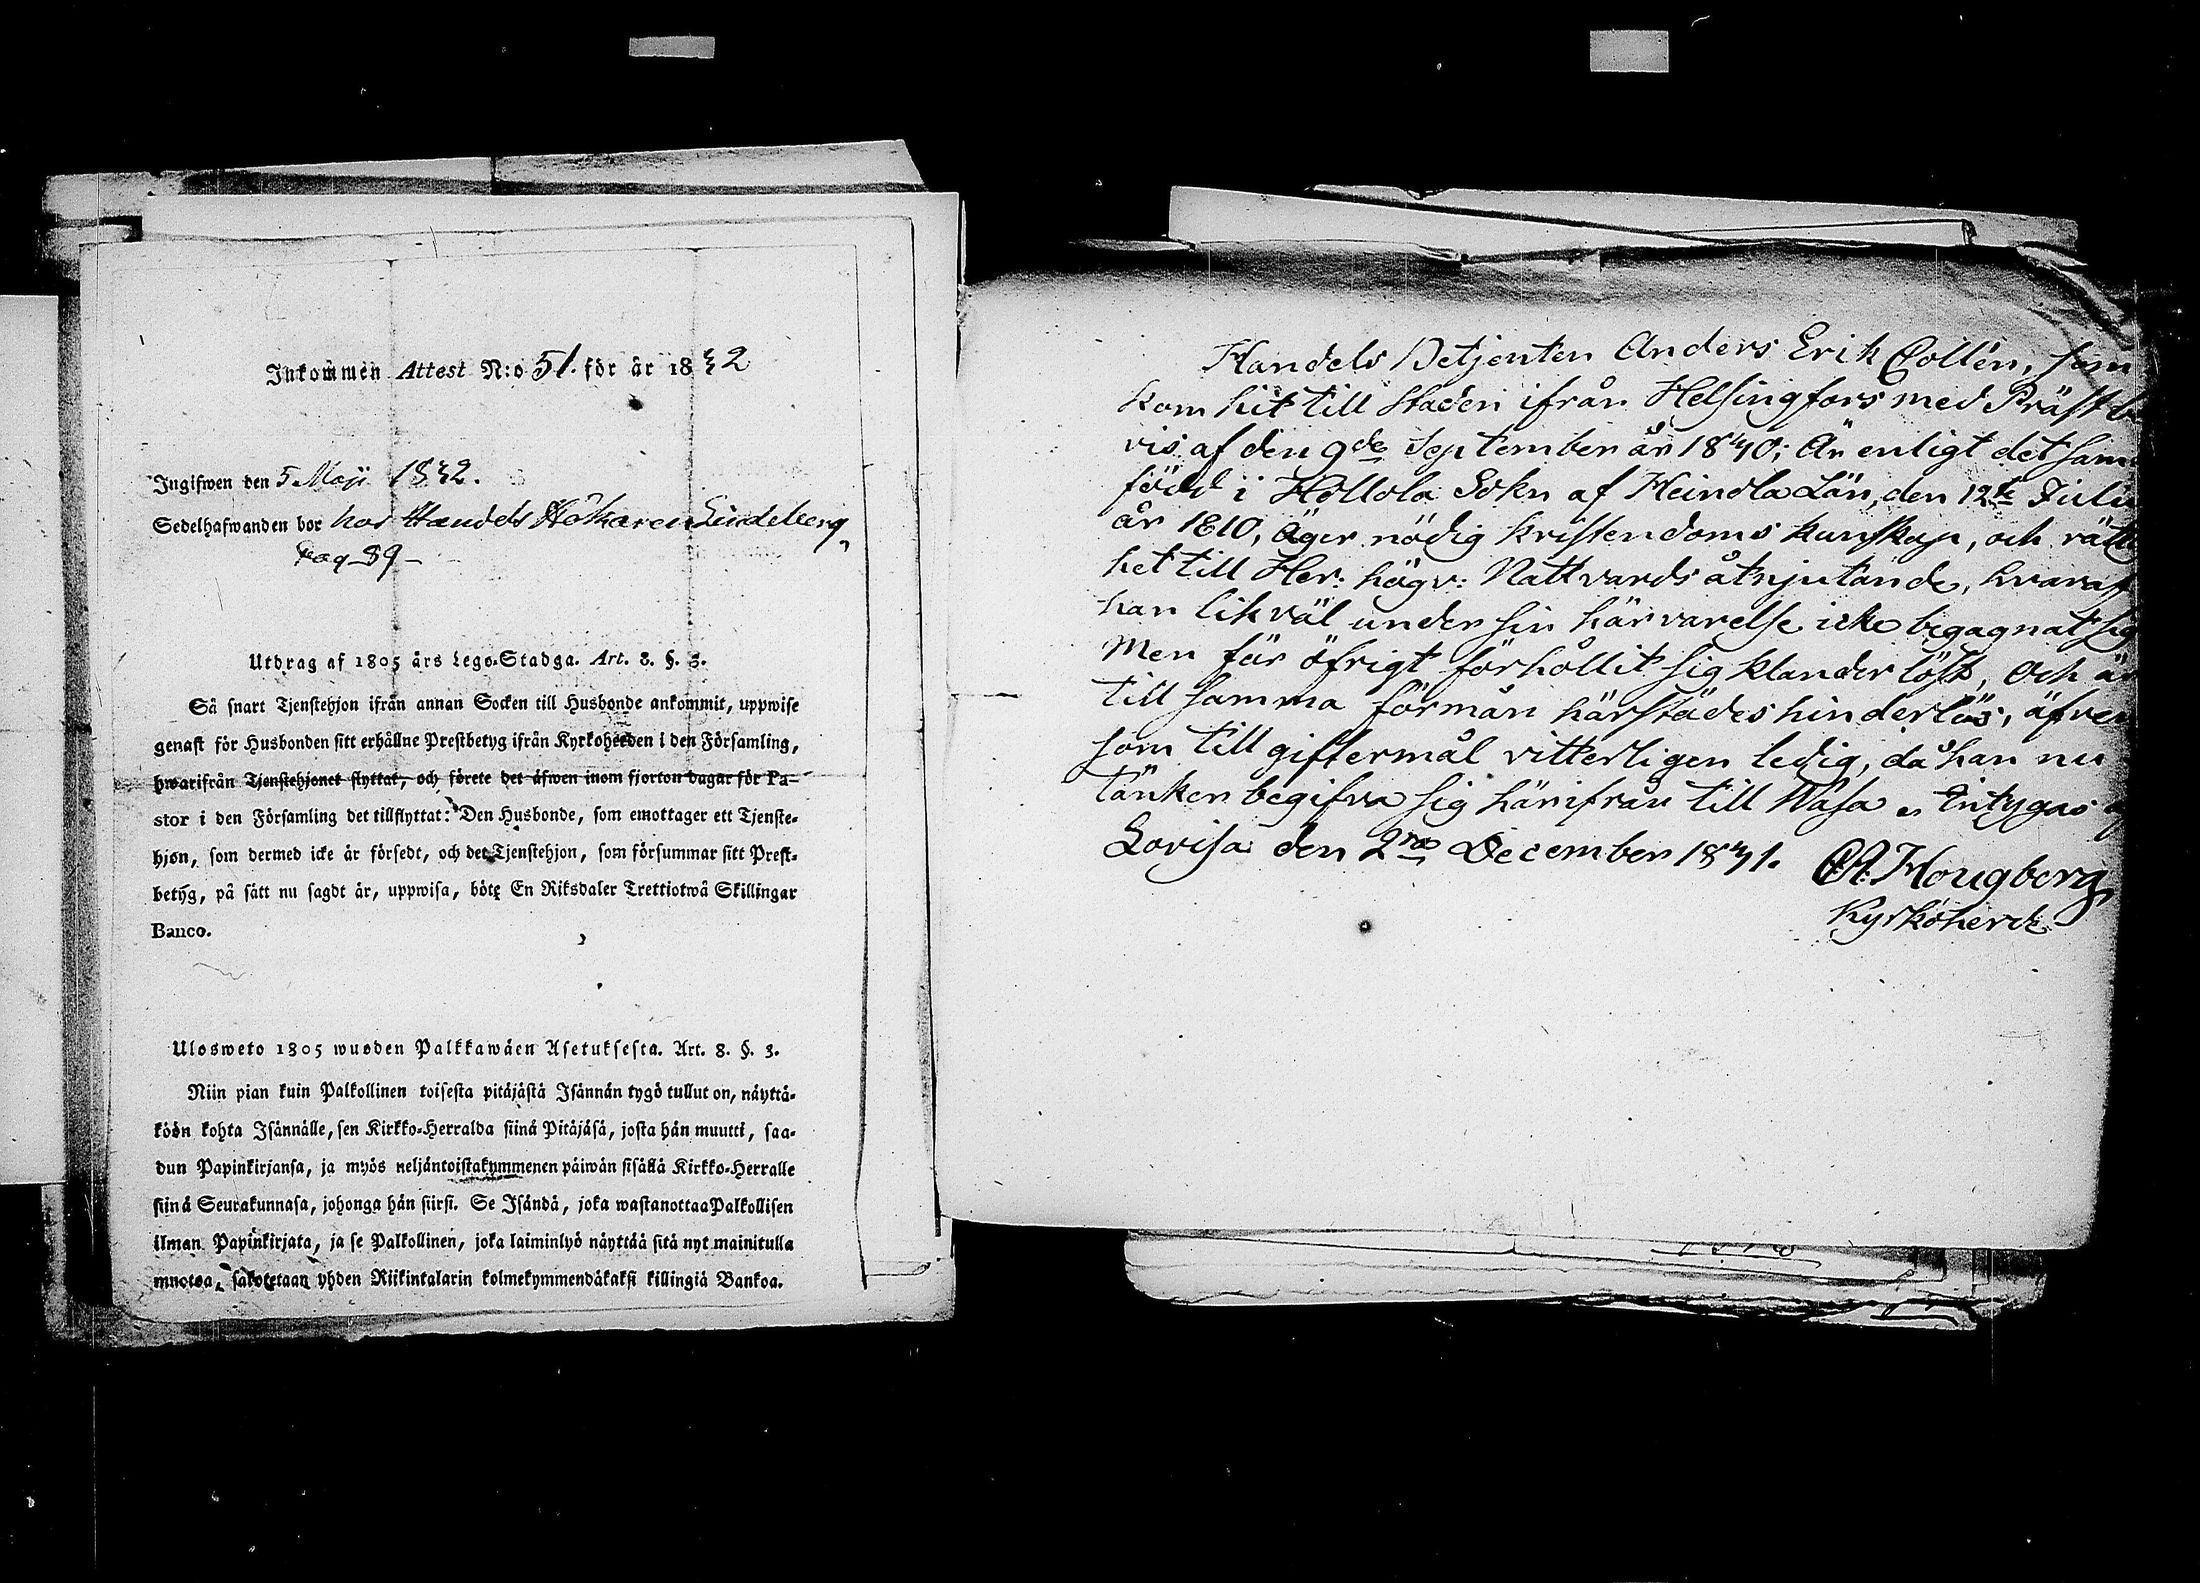 Inkommen Attest N:o 51. för år 1842
Ingifwen den 5 Maji 1842.
Sedelhafwanden bor hos Handels Hökaren Lindeberg,
pag 89 -
Utdrag af 1805 års Lego-Stadga. Art. 8. §. 3.
Så snart Tjenstehjon ifrån annan Socken till Husbonde ankommit, uppwise
genast för Husbonden sitt erhållne Prestbetyg ifrån Kyrkoherden i den Församling,
hwarifrån Tjenstehjonet flyttat, och förete det äfwen inom fjorton dagar för Pa-
stor i den Församling det tillflyttat: Den Husbonde, som emottager ett Tjenste-
hjon, som dermed icke är försedt, och det Tjenstehjon, som försummar sitt Prest-
betyg, på sätt nu sagdt är, uppwisa, böte En Riksdaler Trettiotwå Skillingar
Banco.
Ulosweto 1805 wuoden Palkkawäen Asetuksesta. Art. 8. §. 3.
Niin pian kuin Palkollinen toisesta pitäjästä Isännän tygö tullut on, näyttä-
köön kohta Isännälle, sen Kirkko-Herralda siinä Pitäjäsä, josta hän muutti, saa-
dun Papinkirjansa, ja myös neljäntoistakymmenen päiwän sisällä Kirkko-Herralle
siinä Seurakunnasa, johonga hän siirsi. Se Isändä, joka wastanottaa Palkollisen
ilman Papinkirjata, ja se Palkollinen, joka laiminlyö näyttää sitä nyt mainitulla
muotoa, sakotetaan yhden Riikintalarin kolmekymmendäkaksi killingiä Bankoa.
Handels Betjenten Anders Erik Collén, som
kom hit till Staden ifrån Helsingfors med Präst be
vis af den 9de September år 1840; Är enligt det sam
född i Hollola Sokn af Heinola Län, den 12te Julii
år 1810, Äger nödig kristendoms kunskap, och rätt
het till Her: högv: Nattvards åtnjutande, hvaraf
han likväl under sin härvarelse icke begagnat sig
Men för öfrigt förhållit sig klanderlöst, Och är
till samma förmån härstädes hinderlös, äfven
som till giftermål vitterligen ledig, då han nu
tänker begifva sig härifrån till Wasa. Intygas af
Lovisa den 2ra December 1841.
Hougberg
Kyrkoherde